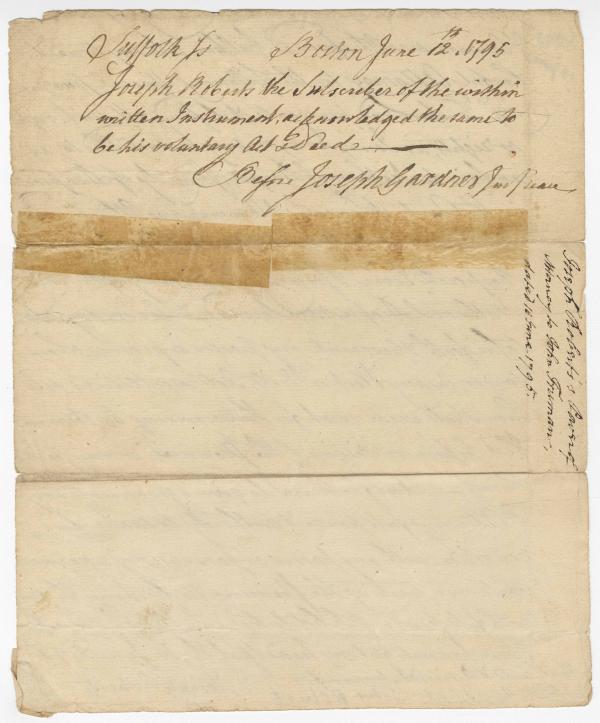 Suffolk Ss Boston June 12th. 1795
Joseph Roberts the Subscriber of the within
written Instrument, acknowledged the same to
be his voluntary Act & Deed
Before Joseph Gardner Jus Peace
Joseph Roberts's Power of
Attorney to John Freeman,
dated 12 June 1795.